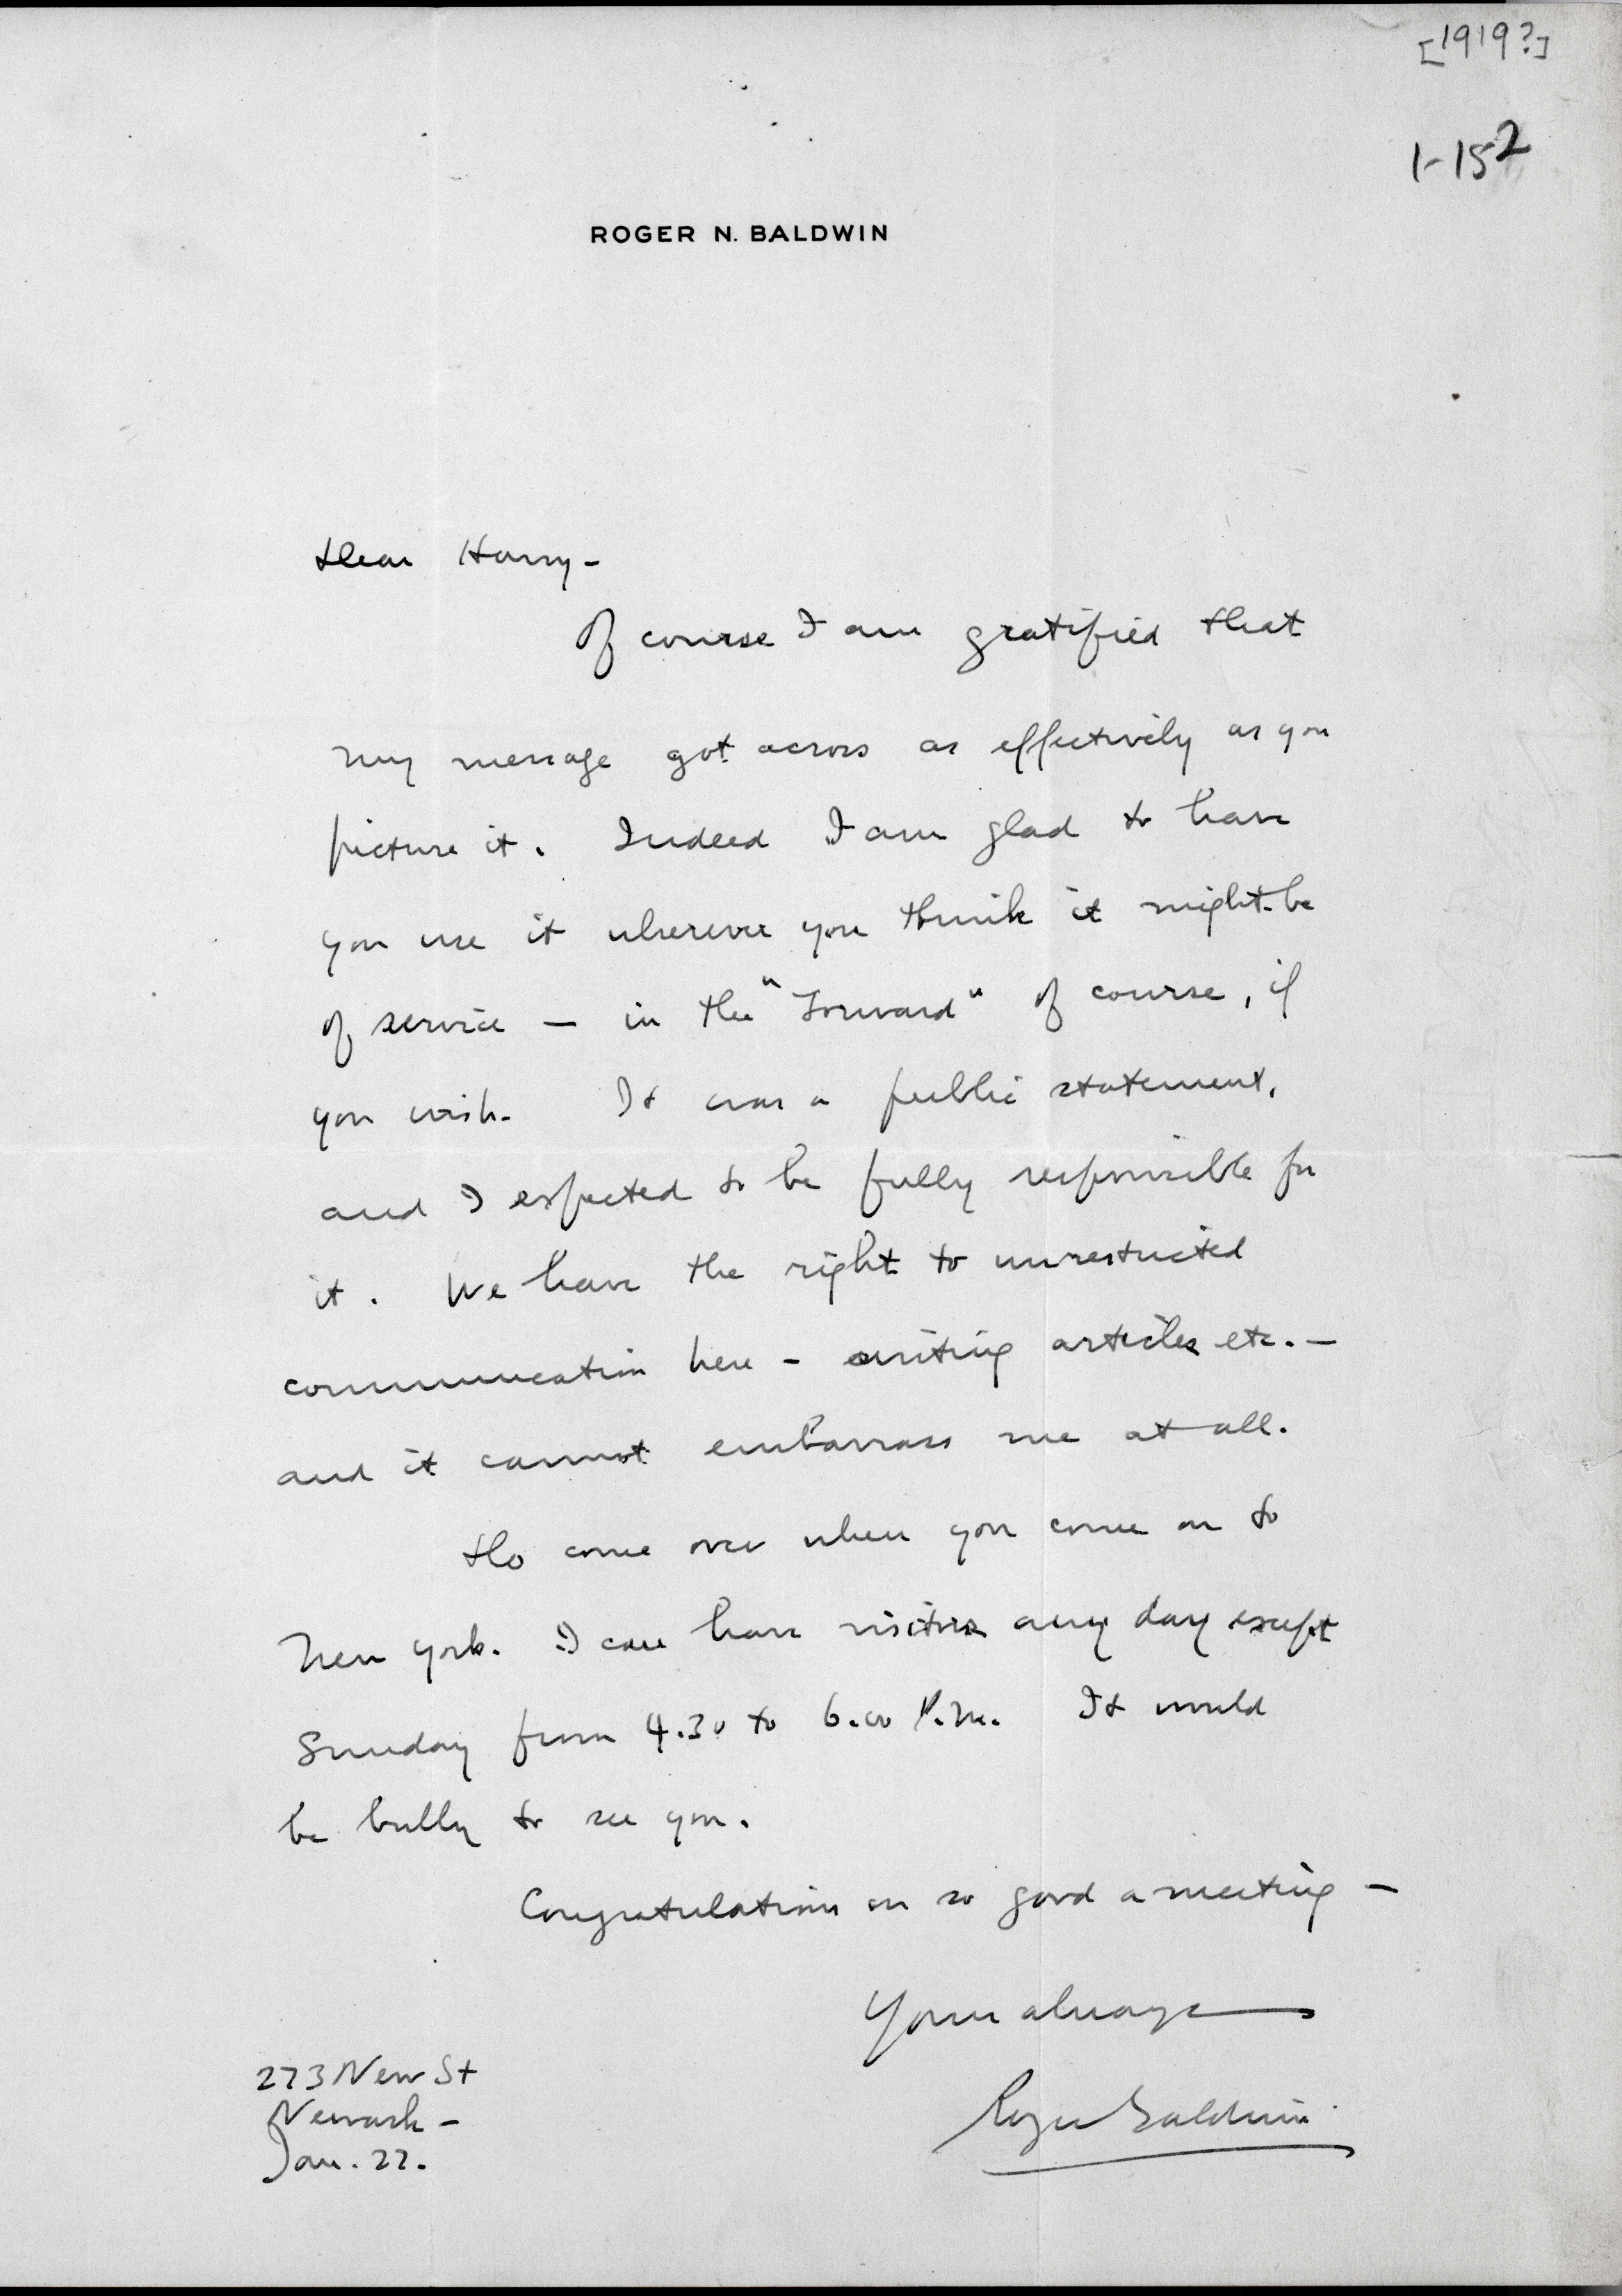 [1919?]
1-152
ROGER N. BALDWIN
Dear Harry-
Of course I am gratified that
my message got across as effectively as you
picture it. Indeed I am glad to have
you use it wherever you think it might be
of service — in the "Forward" of course, if
you wish. It was a public statement,
and I expected to be fully responsible for
it. We have the right to unrestricted
communication here - writing articles etc. —
and it cannot embarrass me at all.
Do come over when you come on to
New York. I can have visitors any day except
Sunday from 4.30 to 6.00 P.M. It would
be bully to see you.
Congratulations on so good a meeting —
Yours always
Roger Baldwin
273 New St
Newark -
Jan. 22.